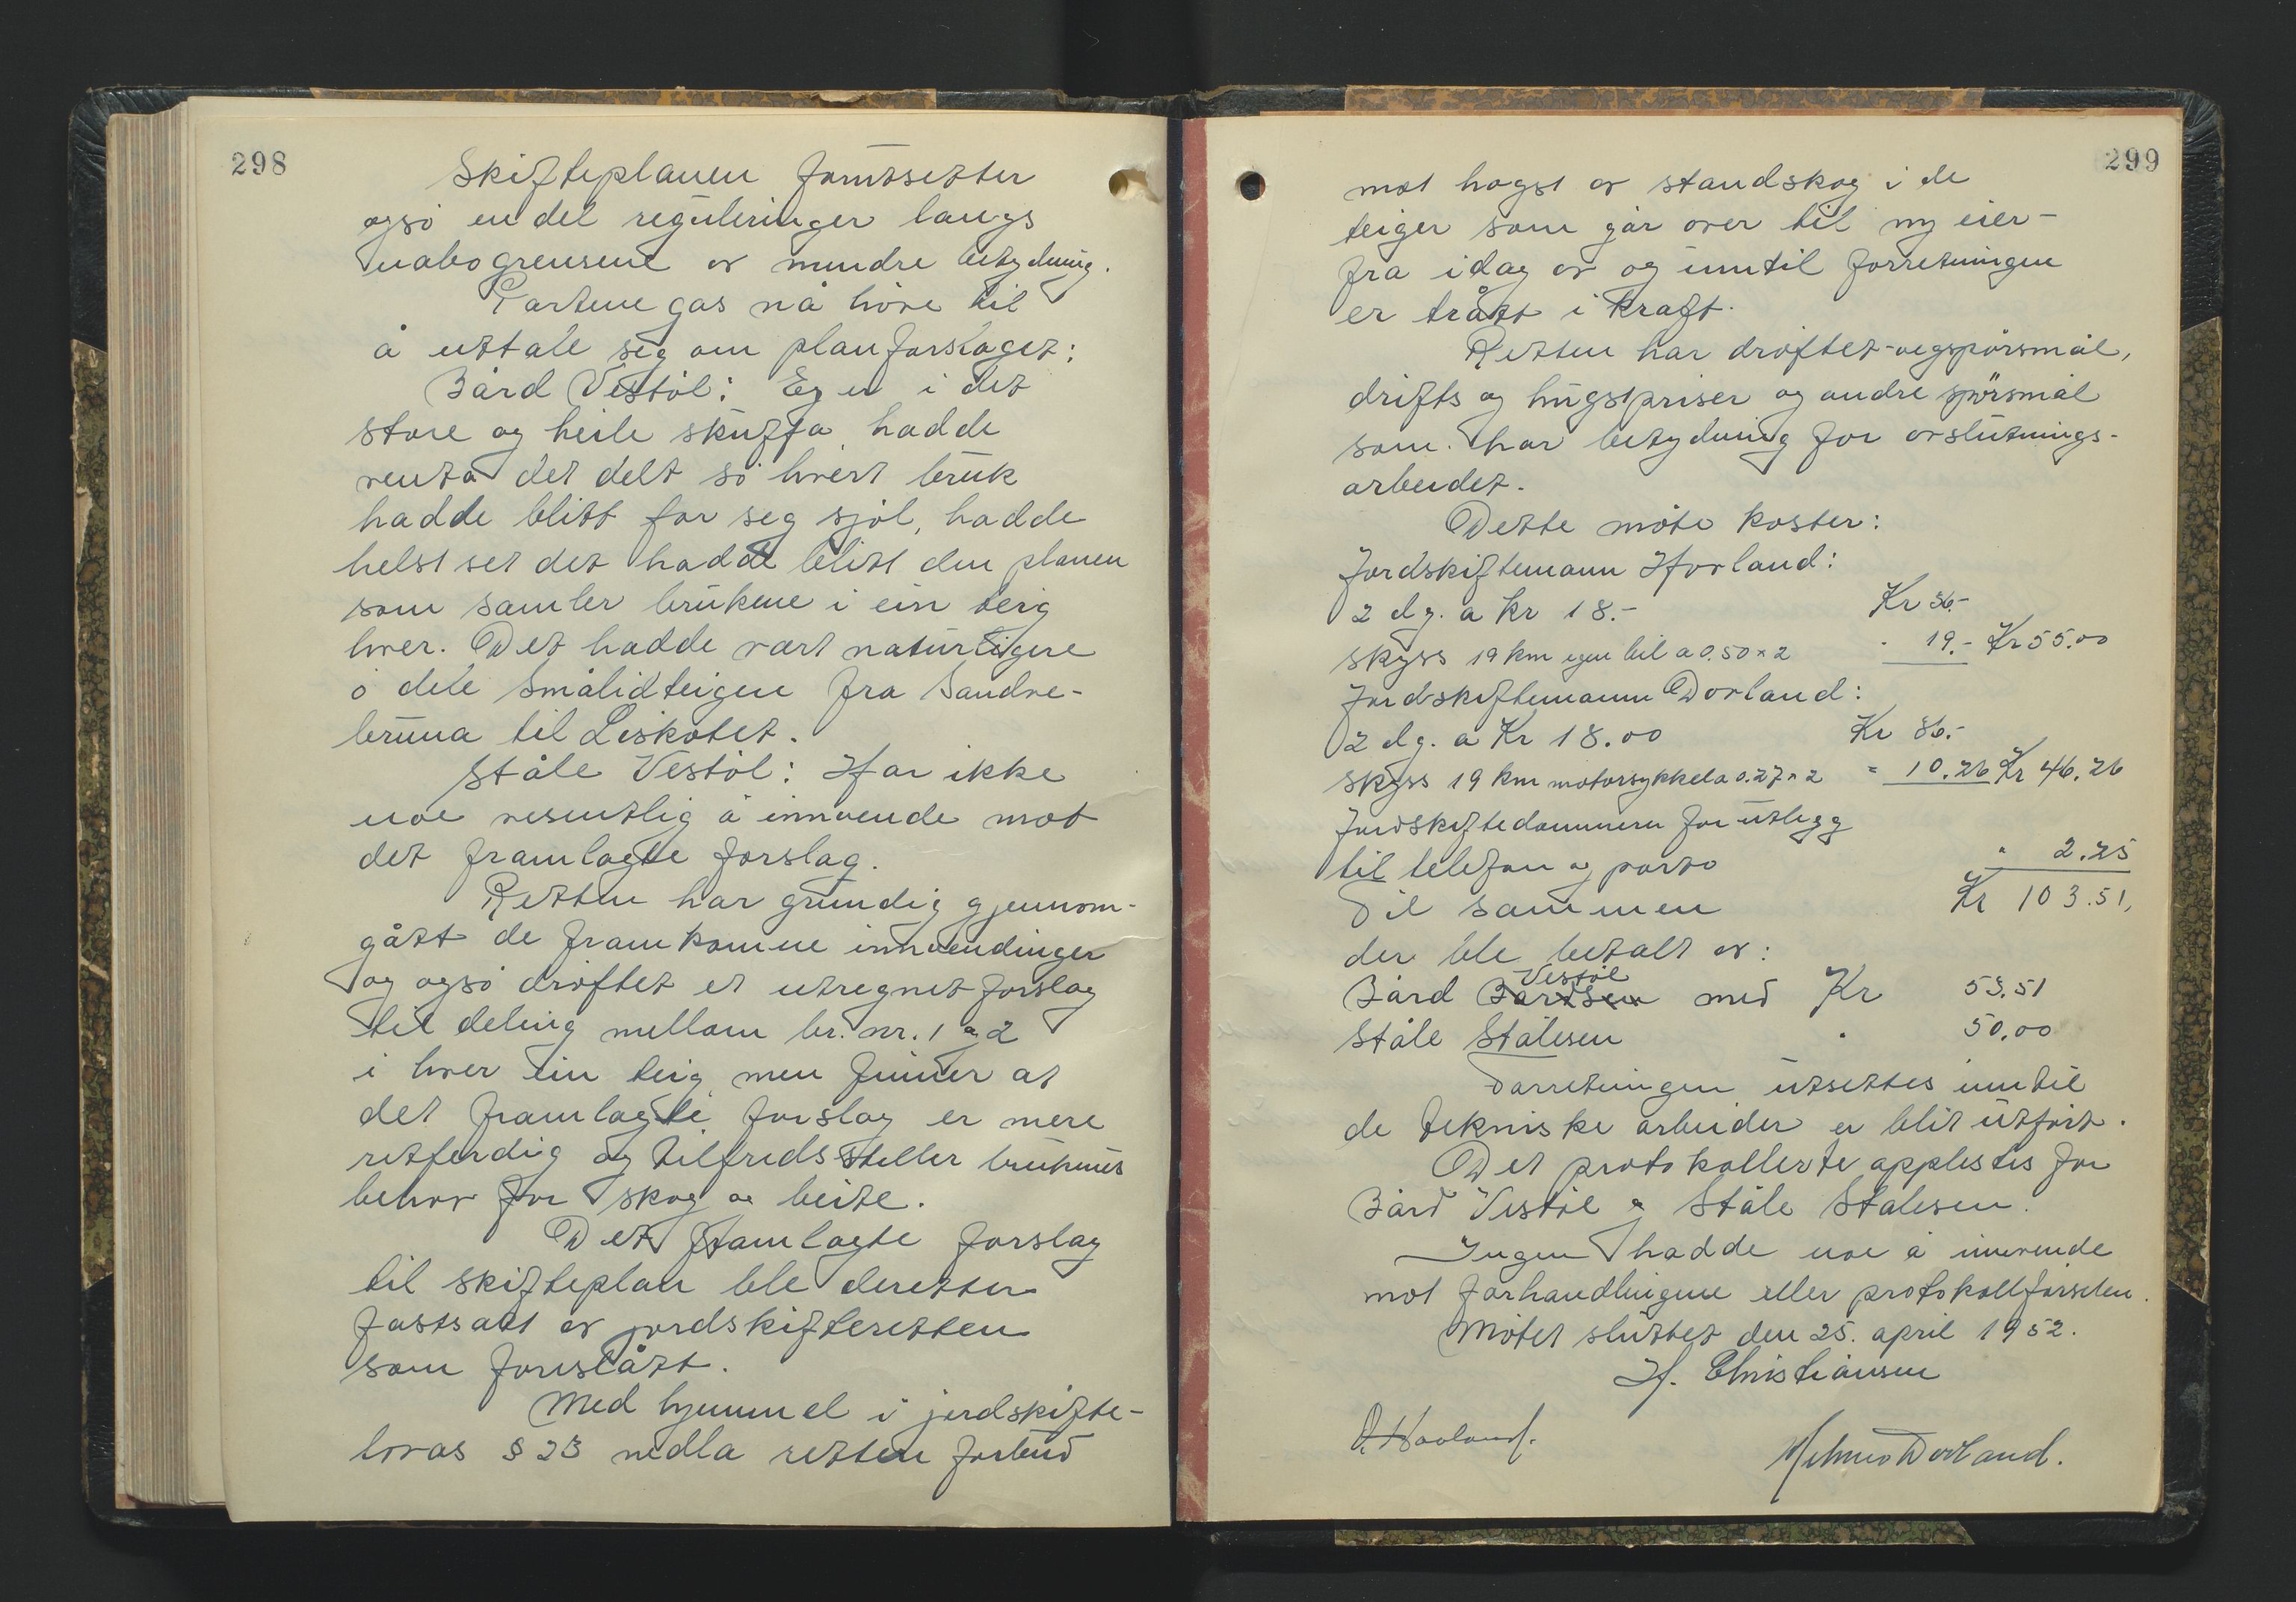 298
Skifteplanen forutsetter
også en del reguleringer langs
nabogrensene av mindre betydning.
Partene gas nå höve til
å uttale seg om planforslaget:
Bård Vestöl: Eg er i det
store og heile skuffa, hadde
venta det delt så hvert bruk
hadde blitt for seg sjöl, hadde
helst set det hadde blitt den planen
som samler brukene i ein teig
hver. Det hadde vært naturligere
å dele Smålidteigen fra Sandve-
bruna til Liskotet.
Ståle Vestöl: Har ikke
noe vesentlig å innvende mot
det framlagte forslag.
Retten har grundig gjennom-
gått de framkomne innvendinger
og også dröftet et utregnet forslag
til deling mellom br. nr. 1 og 2
i hver ein teig men finner at
det framlagte forslag er mere
retferdig og tilfredsstiller brukenes
behov for skog og beite.
Det framlagte forslag
til skifteplan ble deretter
fastsatt av jordskifteretten
som foreslått.
Med hjemmel i jordskifte-
lovas § 23 nedla retten forbud
299
mot hogst av standskog i de
teiger som går over til ny eier -
fra idag av og inntil forretningen
er trått i kraft.
Retten har dröftet vegspörsmål,
drifts og hugstpriser og andre spörsmål
som har betydning for avslutnings-
arbeidet.
Dette möte koster:
Jordskiftemann Hovland:
2 dg. a kr 18.- Kr 36.-
Skyss 19 km egen bil a 0.50 x 2 " 19.- Kr 55.00
Jordskiftemann Dovland:
2 dg. a Kr 18.00 Kr 36.-
Skyss 19 km motorsykkel a 0.27 x 2 " 10.26 Kr 46.26
Jordskiftedommeren for utlegg
til telefon og porto " 2.25
Til sammen Kr 103.51,
der ble betalt av:
Vestöl
Bård Bårdsen med Kr 53.51
Ståle Stålesen " 50.00
Forretningen utsettes inntil
de tekniske arbeider er blit utfört.
Det protokollerte opplestes for
Bård Vestöl og Ståle Stålesen.
Ingen hadde noe å innvende
mot forhandlingene eller protokollförselen.
Mötet sluttet den 25. april 1952.
H. Christiansen
O. Hovland. Dovland.